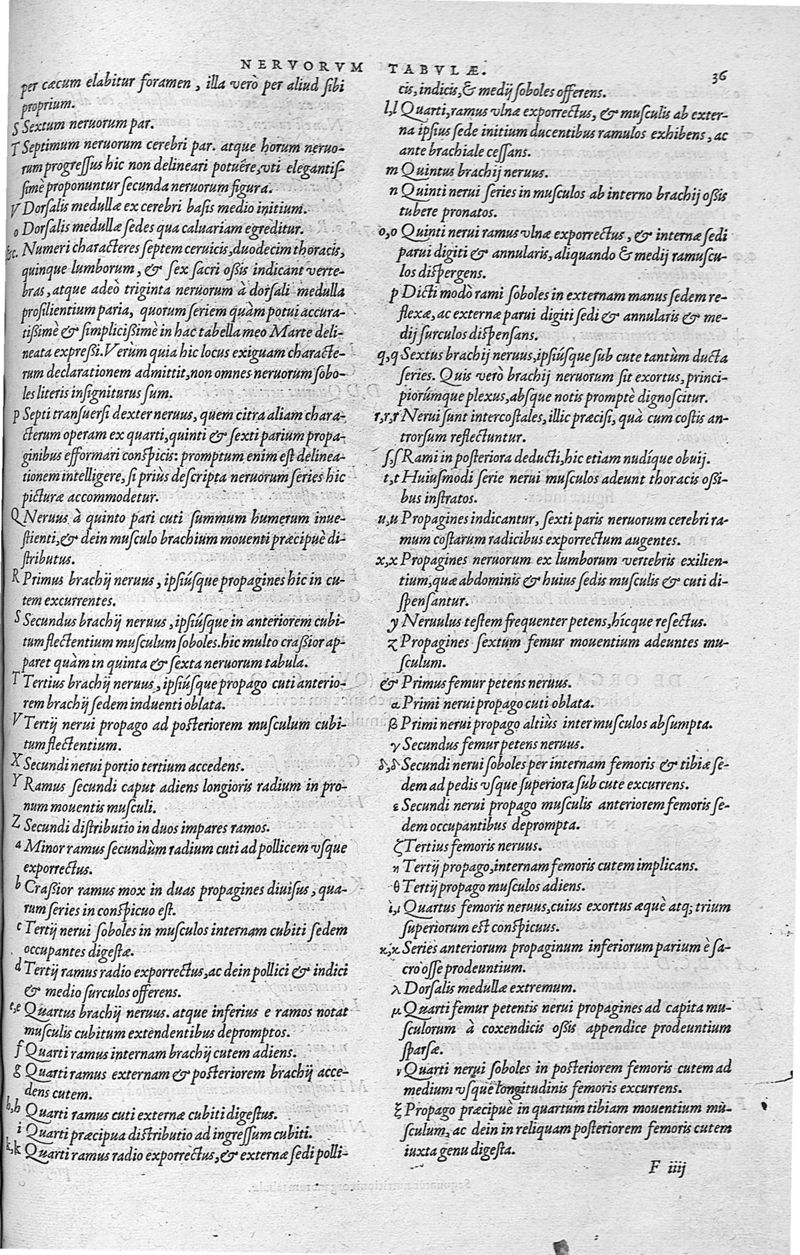 NERVORVM TABVLÆ. 36
per cæcum elabitur foramen, illa verò per aliud sibi
proprium.
S Sextum neruorum par.
T Septimum neruorum cerebri par. atque horum neruo-
rum progressus hic non delineari potuêre, vti elegantis-
simè proponuntur secunda neruorum figura.
V Dorsalis medullæ ex cerebri basis medio initium.
o Dorsalis medullæ sedes qua caluariam egreditur.
&c. Numeri characteres septem ceruicis, duodecim thoracis,
quinque lumborum, & sex sacri ossis indicant verte-
bras, atque adeò triginta neruorum à dorsali medulla
prosilientium paria, quorum seriem quàm potui accura-
tissimè & simplicissimè in hac tabella meo Marte deli-
neata expressi. Verùm quia hic locus exiguam characte-
rum declarationem admittit, non omnes neruorum sobo-
les literis insigniturus sum.
p Septi transuersi dexter neruus, quem citra aliam chara-
cterum operam ex quarti, quinti & sexti parium propa-
ginibus efformari conspicis: promptum enim est delinea-
tionem intelligere, si priùs descripta neruorum series hic
picturæ accommodetur.
Q Neruus à quinto pari cuti summum humerum inue-
stienti, & dein musculo brachium mouenti præcipuè di-
stributus.
R Primus brachij neruus, ipsiúsque propagines hic in cu-
tem excurrentes.
S Secundus brachij neruus, ipsiúsque in anteriorem cubi-
tum flectentium musculum soboles. hic multo crassior ap-
paret quàm in quinta & sexta neruorum tabula.
T Tertius brachij neruus, ipsiúsque propago cuti anterio-
rem brachij sedem induenti oblata.
V Tertij nerui propago ad posteriorem musculum cubi-
tum flectentium.
X Secundi nerui portio tertium accedens.
Y Ramus secundi caput adiens longioris radium in pro-
num mouentis musculi.
Z Secundi distributio in duos impares ramos.
a Minor ramus secundùm radium cuti ad pollicem vsque
exporrectus.
b Crassior ramus mox in duas propagines diuisus, qua-
rum series in conspicuo est.
c Tertij nerui soboles in musculos internam cubiti sedem
occupantes digestæ.
d Tertij ramus radio exporrectus, ac dein pollici & indici
& medio surculos offerens.
e,e Quartus brachij neruus. atque inferius e ramos notat
musculis cubitum extendentibus depromptos.
f Quarti ramus internam brachij cutem adiens.
g Quarti ramus externam & posteriorem brachij acce-
dens cutem.
h,h Quarti ramus cuti externæ cubiti digestus.
i Quarti præcipua distributio ad ingressum cubiti.
k,k Quarti ramus radio exporrectus, & externæ sedi polli-
cis, indicis, & medij soboles offerens.
l,l Quarti, ramus vlnæ exporrectus, & musculis ab exter-
na ipsius sede initium ducentibus ramulos exhibens, ac
ante brachiale cessans.
m Quintus brachij neruus.
n Quinti nerui series in musculos ab interno brachij ossis
tubere pronatos.
o,o Quinti nerui ramus vlnæ exporrectus, & internæ sedi
parui digiti & annularis, aliquando & medij ramuscu-
los dispergens.
p Dicti modò rami soboles in externam manus sedem re-
flexæ, ac externæ parui digiti sedi & annularis & me-
dij surculos dispensans.
q,q Sextus brachij neruus, ipsiúsque sub cute tantùm ducta
series. Quis verò brachij neruorum sit exortus, princi-
piorúmque plexus, absque notis promptè dignoscitur.
r,r,r Nerui sunt intercostales, illic præcisi, quà cum costis an-
trorsum reflectuntur.
s,s Rami in posteriora deducti, hic etiam nudíque obuij.
t,t Huiusmodi serie nerui musculos adeunt thoracis ossi-
bus instratos.
u,u Propagines indicantur, sexti paris neruorum cerebri ra-
mum costarum radicibus exporrectum augentes.
x,x Propagines neruorum ex lumborum vertebris exilien-
tium, quæ abdominis & huius sedis musculis & cuti di-
spensantur.
y Neruulus testem frequenter petens, hîcque resectus.
z Propagines sextum femur mouentium adeuntes mu-
sculum.
& Primus femur petens neruus.
α Primi nerui propago cuti oblata.
β Primi nerui propago altiùs inter musculos absumpta.
γ Secundus femur petens neruus.
δ,δ Secundi nerui soboles per internam femoris & tibiæ se-
dem ad pedis vsque superiora sub cute excurrens.
ε Secundi nerui propago musculis anteriorem femoris se-
dem occupantibus deprompta.
ζ Tertius femoris neruus.
η Tertij propago, internam femoris cutem implicans.
θ Tertij propago musculos adiens.
ι,ι Quartus femoris neruus, cuius exortus æquè atq; trium
superiorum est conspicuus.
κ,κ Series anteriorum propaginum inferiorum parium è sa-
cro osse prodeuntium.
λ Dorsalis medullæ extremum.
μ Quarti femur petentis nerui propagines ad capita mu-
sculorum à coxendicis ossis appendice prodeuntium
sparsæ.
ν Quarti nerui soboles in posteriorem femoris cutem ad
medium vsque longitudinis femoris excurrens.
ξ Propago præcipuè in quartum tibiam mouentium mu-
sculum, ac dein in reliquam posteriorem femoris cutem
iuxta genu digesta.
F iiij